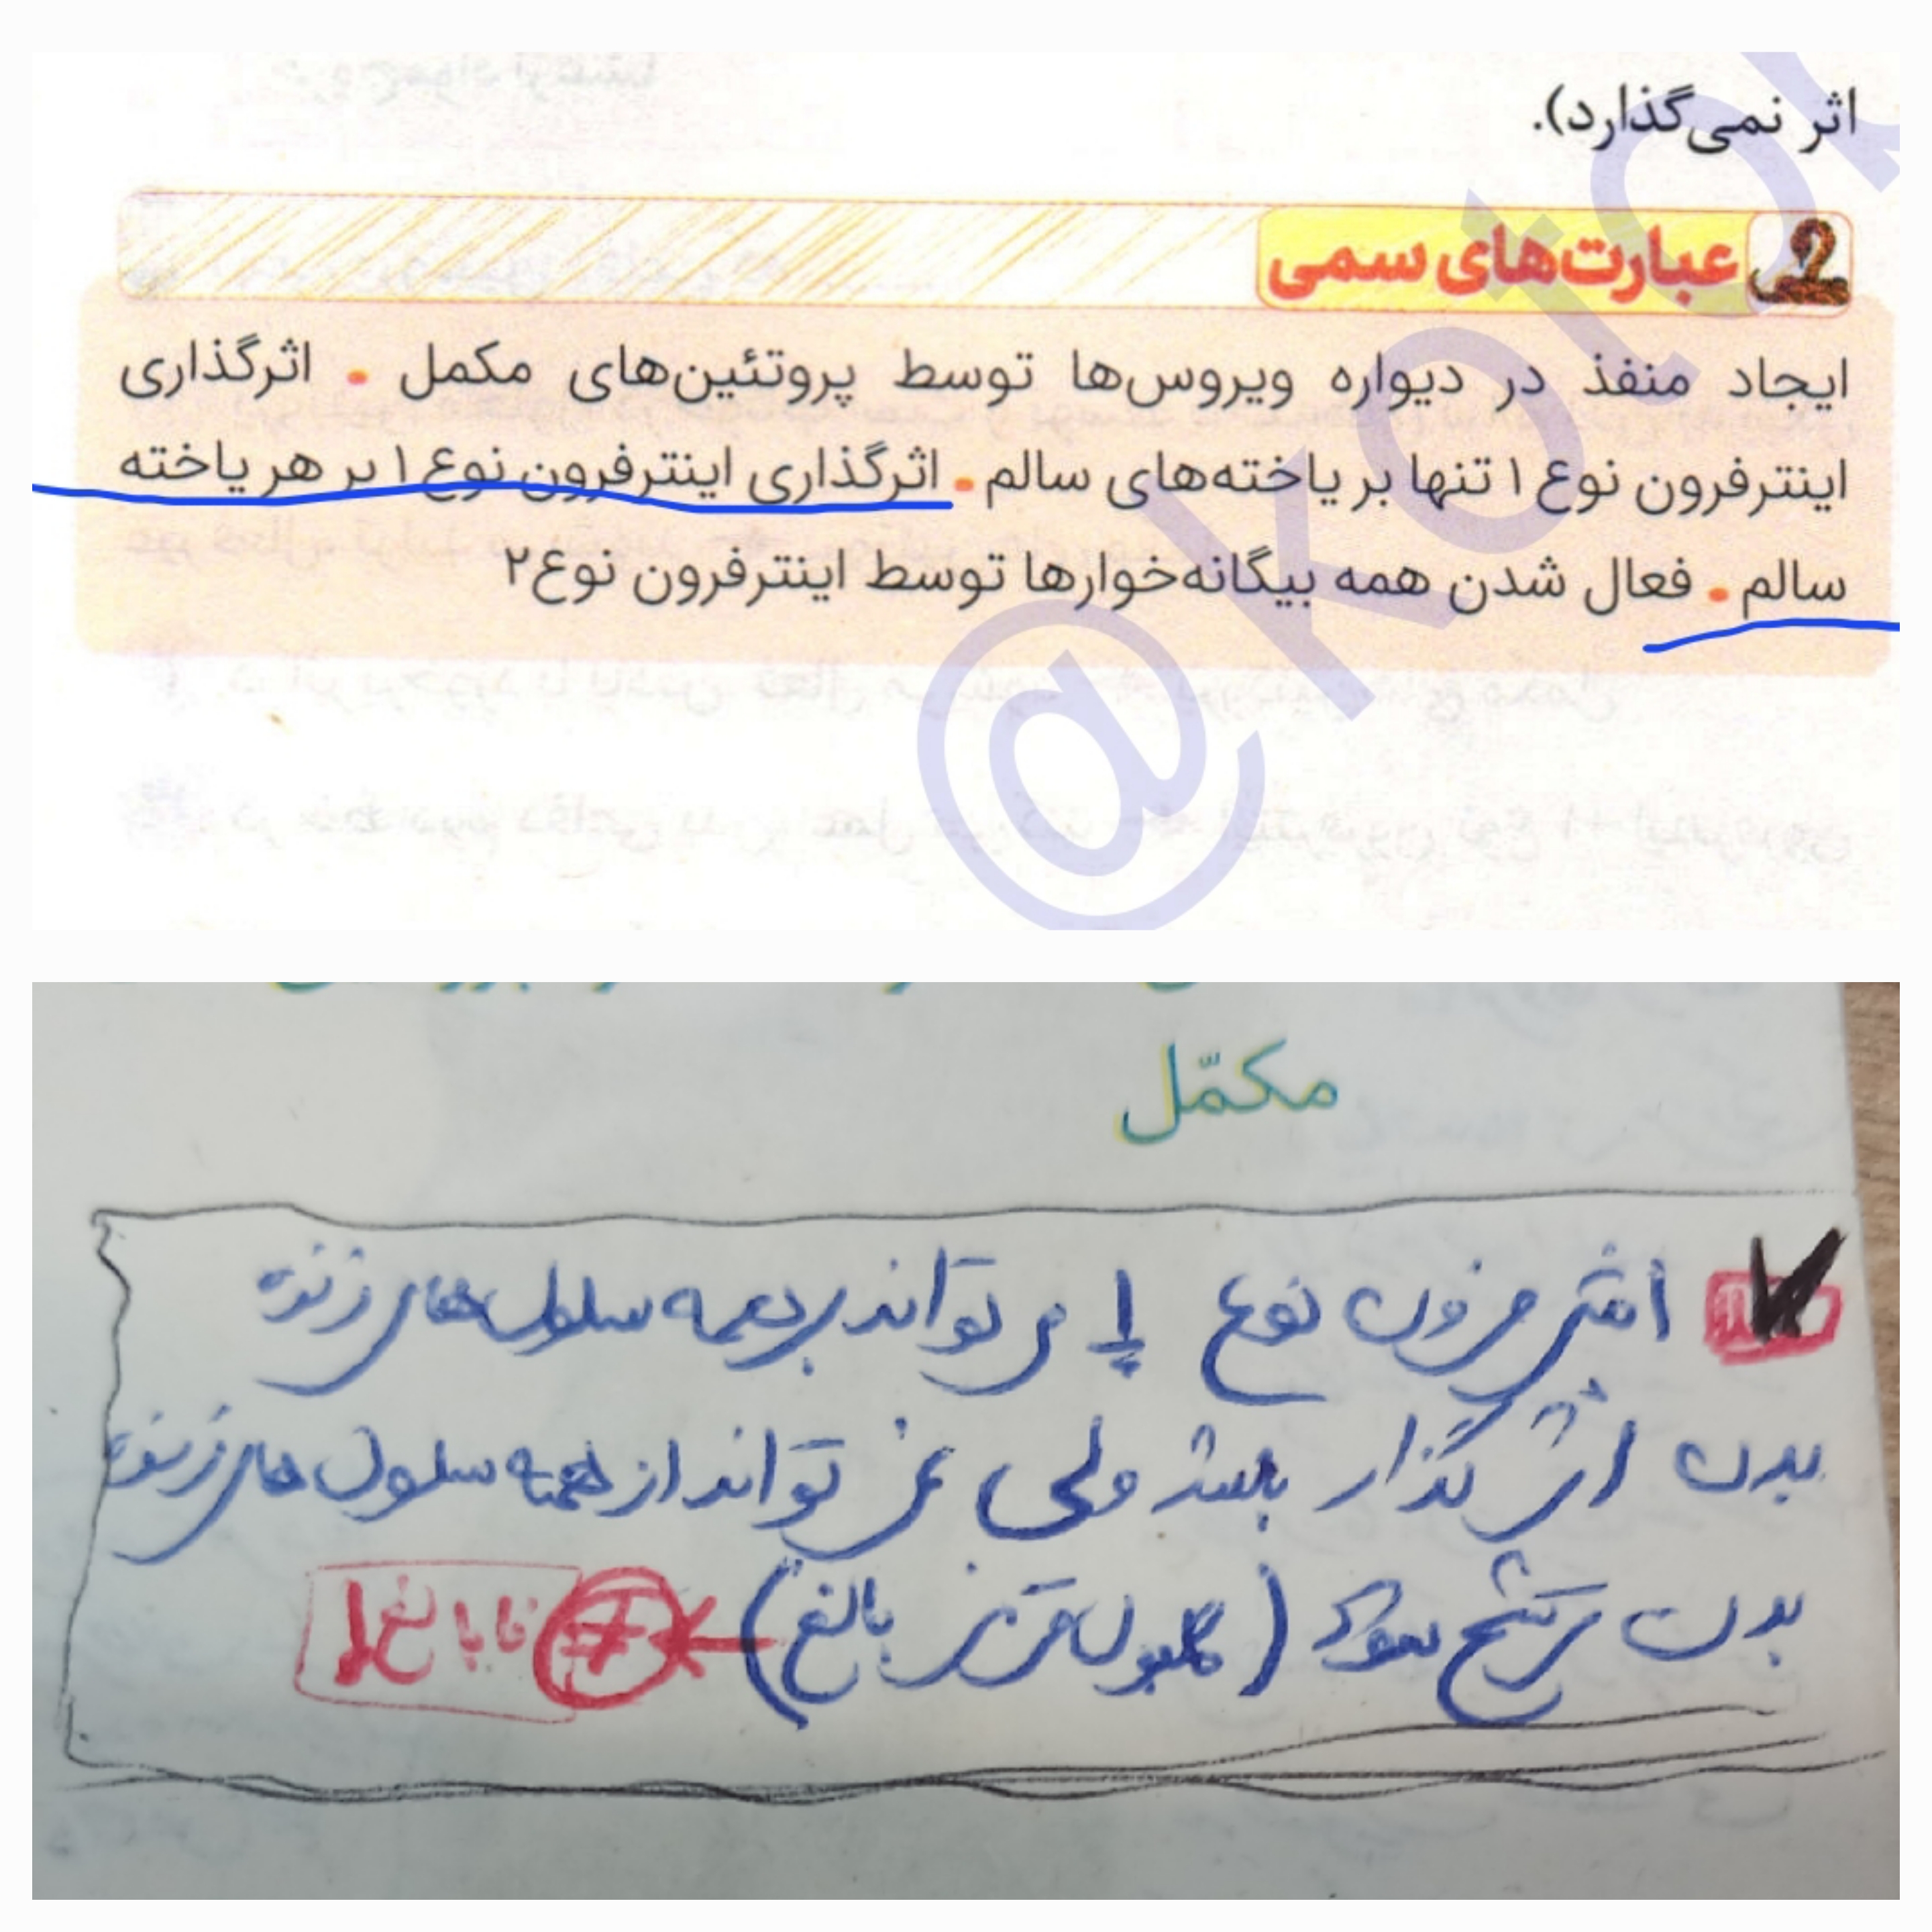 اثر نمی‌گذارد).
عبارت‌های سمی
ایجاد منفذ در دیواره ویروس‌ها توسط پروتئین‌های مکمل • اثرگذاری
اینترفرون نوع ۱ تنها بر یاخته‌های سالم • اثرگذاری اینترفرون نوع ۱ بر هر یاخته
سالم • فعال شدن همه بیگانه‌خوارها توسط اینترفرون نوع۲
@kotor
مکمّل
اینترفرون نوع 1 می تواند بر همه سلول های زنده
بدن اثر گذار باشد ولی نمی تواند از همه سلول های زنده
بدن ترشح شود (گلبول قرمز بالغ) ← ≠ نابالغ!